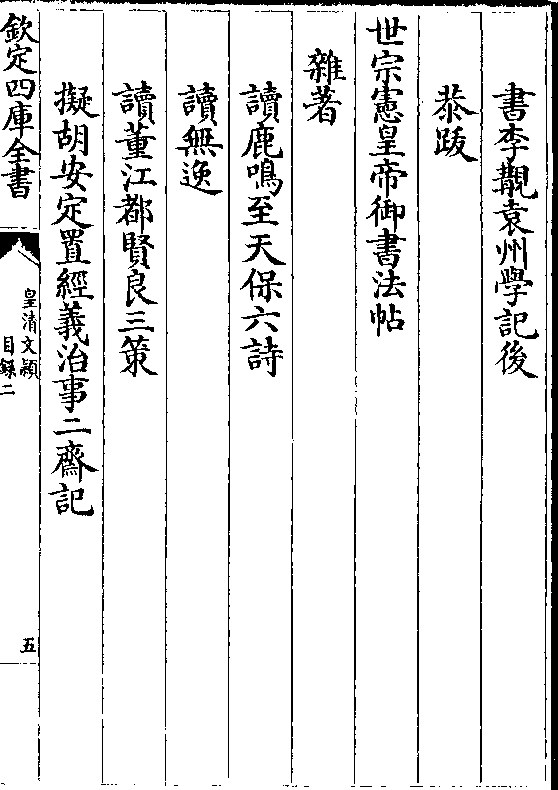 書李觀袁州學記後
恭跋
世宗憲皇帝御書法帖
雜著
讀鹿鳴至天保六詩
讀無逸
讀董江都賢良三策
擬胡安定置經義治事二齋記
欽定四庫全書
皇清文穎
目錄二
五